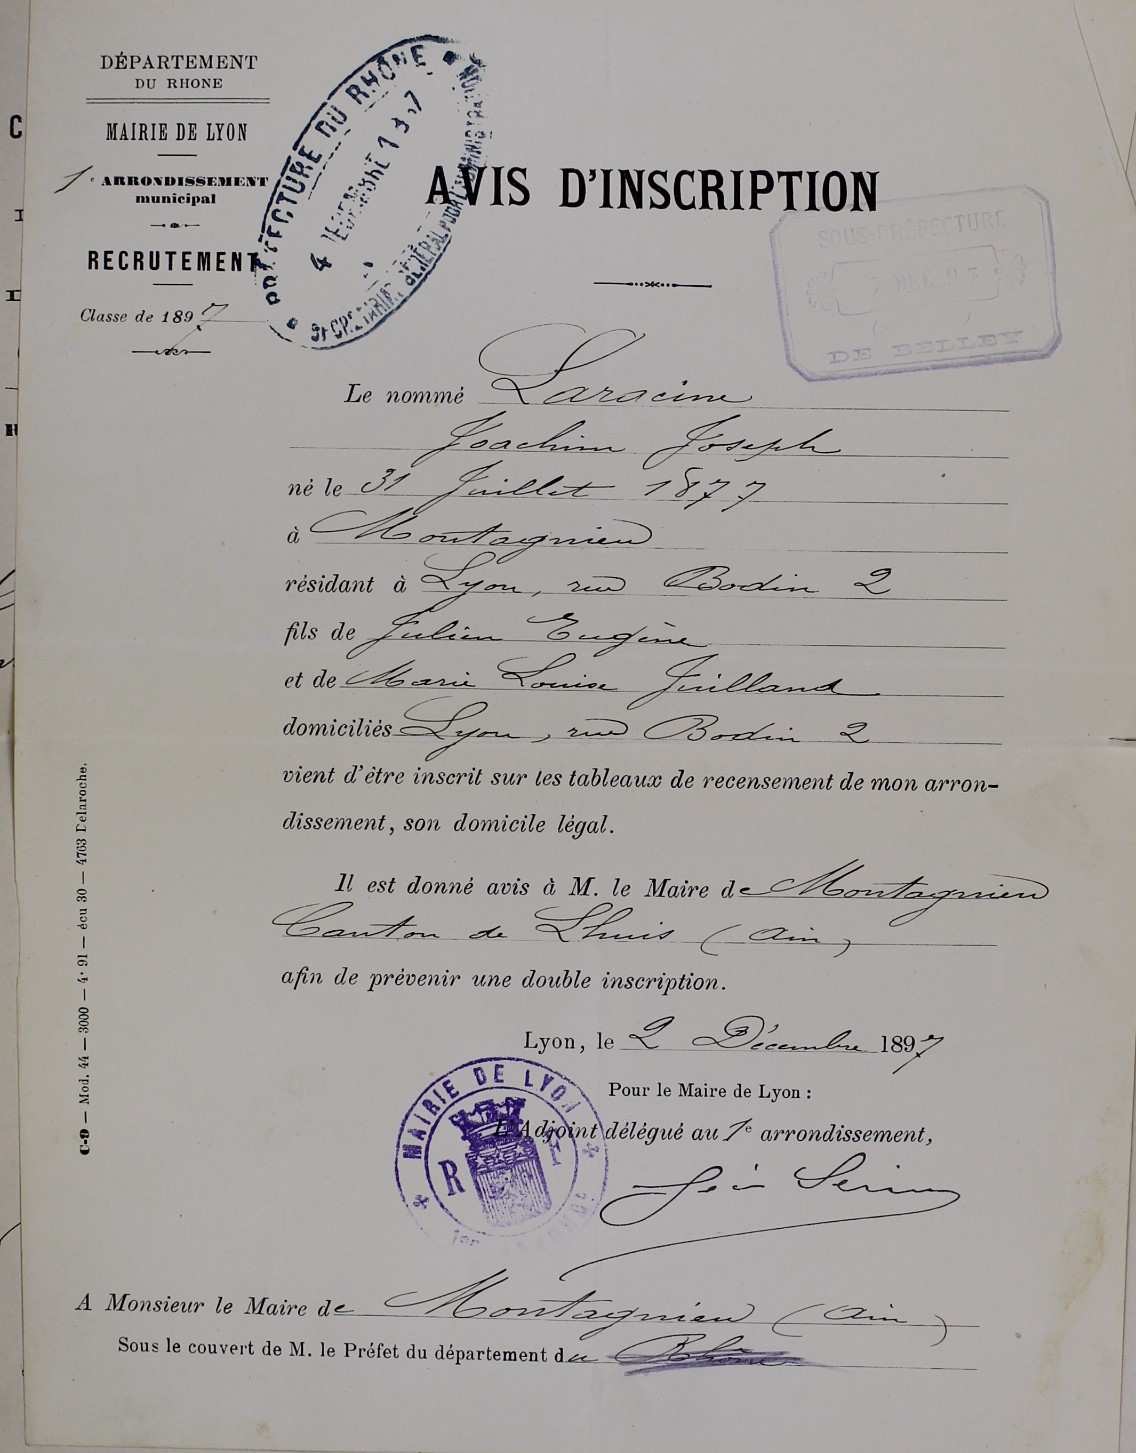 DÉPARTEMENT
DU RHONE
MAIRIE DE LYON
1e ARRONDISSEMENT
municipal
RECRUTEMENT
Classe de 1897
PRÉFECTURE DU RHÔNE
4 DECEMBRE 1897
SECRÉTARIAT GÉNÉRAL POUR L'ADMINISTRATION
AVIS D'INSCRIPTION
SOUS-PRÉFECTURE
DE BELLEY
Le nommé Laracine
Joachim Joseph
né le 31 Juillet 1877
à Montagnieu
résidant à Lyon, rue Bodin 2
fils de Julien Eugène
et de Marie Louise Juilland
domiciliés Lyon, rue Bodin 2
vient d'être inscrit sur les tableaux de recensement de mon arron-
dissement, son domicile légal.
Il est donné avis à M. le Maire de Montagnieu
Canton de Lhuis (Ain)
afin de prévenir une double inscription.
Lyon, le 2 Décembre 1897
Pour le Maire de Lyon :
L'Adjoint délégué au 1e arrondissement,
MAIRIE DE LYON
R F
A Monsieur le Maire de Montagnieu (Ain)
Sous le couvert de M. le Préfet du département du Rhône
C-9 — Mod. 44 — 3000 — 4-91 — écu 30 — 4763 Delaroche.